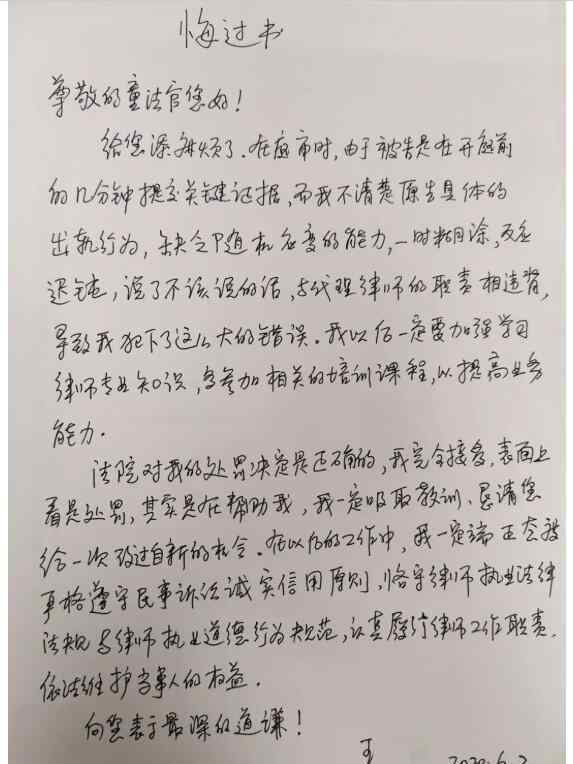 悔过书
尊敬的童法官您好!
给您添麻烦了。在庭审时,由于被告是在开庭前
的几分钟提交关键证据,而我不清楚原告具体的
出轨行为,缺乏随机应变的能力,一时糊涂,反应
迟钝,说了不该说的话,与代理律师的职责相违背,
导致我犯下了这么大的错误。我以后一定要加强学习
律师专业知识,多参加相关的培训课程,以提高业务
能力。
法院对我的处罚决定是正确的,我完全接受,表面上
看是处罚,其实是在帮助我,我一定吸取教训、恳请您
给一次改过自新的机会。在以后的工作中,我一定端正态度
严格遵守民事诉讼诚实信用原则,恪守律师执业法律
法规与律师执业道德行为规范,认真履行律师工作职责,
依法维护当事人的权益。
向您表示最深的道谦!
王